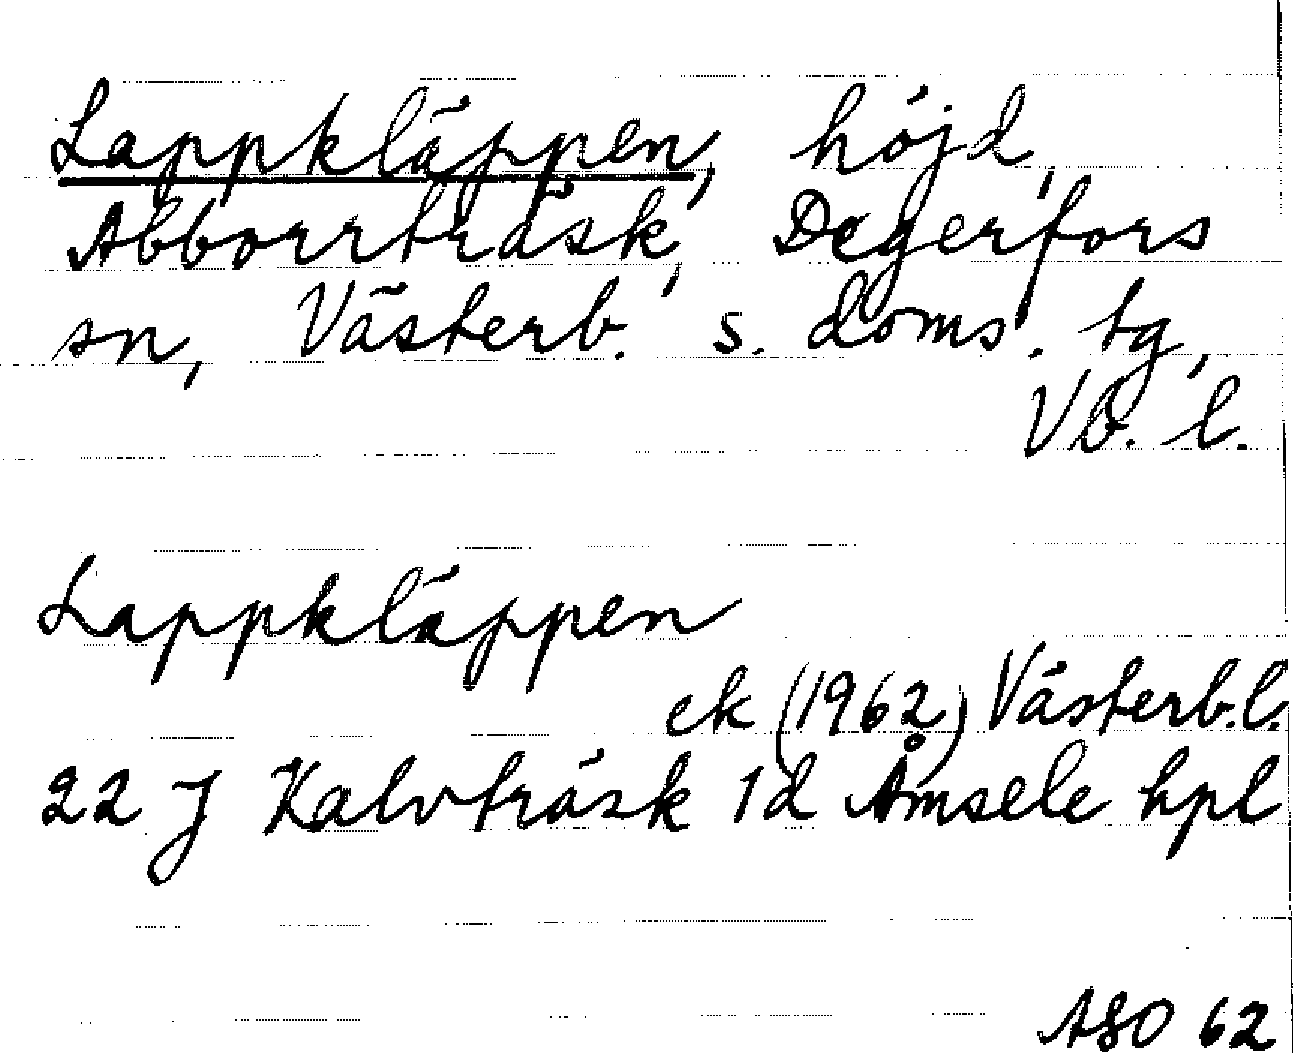 Lappkläppen, höjd,
Abborrträsk, Degerfors
sn, Västerb. s. doms. tg,
Vb. l.
Lappkläppen
ek (1962) Västerb.l.
22 J Kalvträsk 1d Åmsele hpl
ASO 62